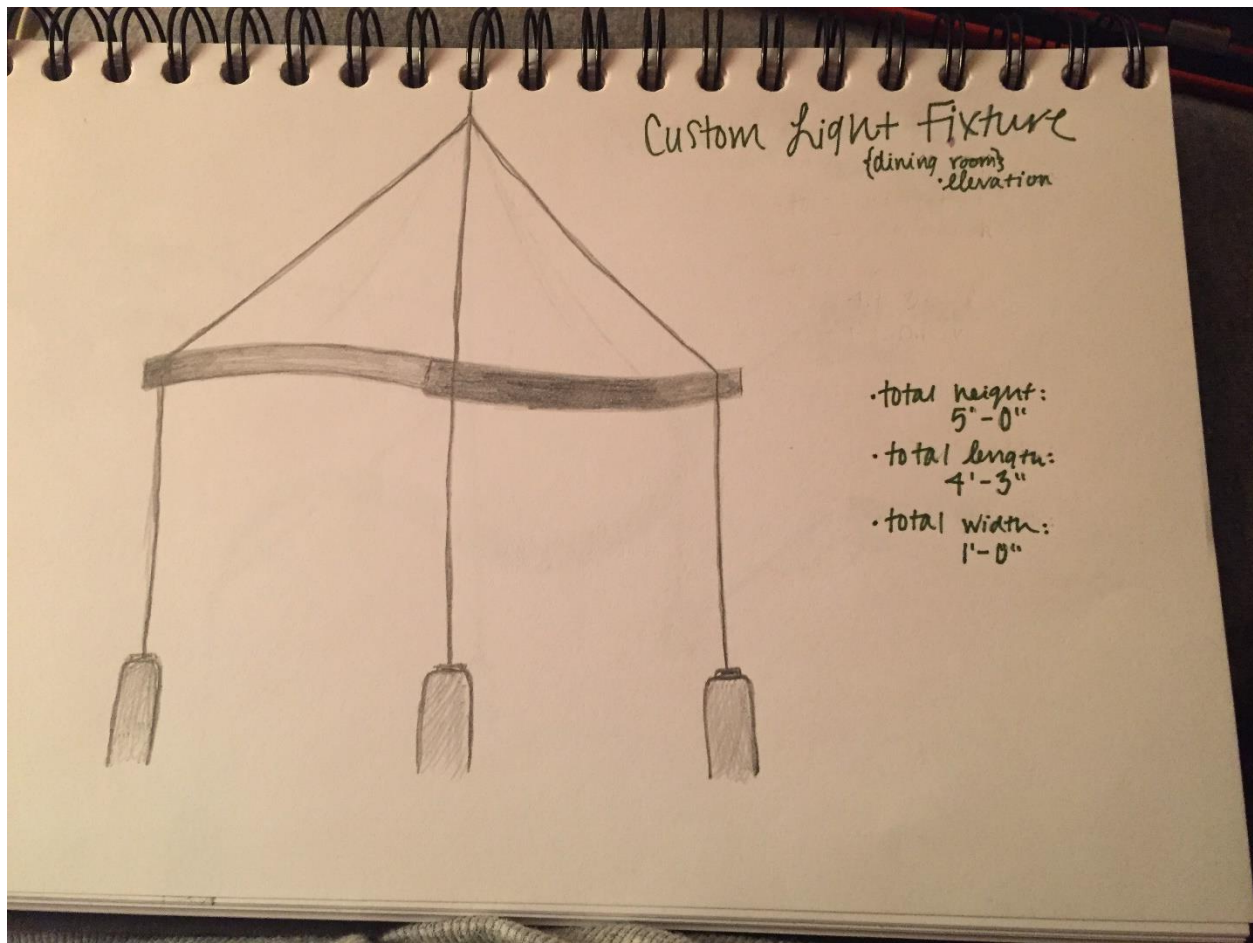 Custom Light Fixture
{dining room}
·elevation
·total height:
5'-0"
·total length:
4'-3"
·total width:
1'-0"